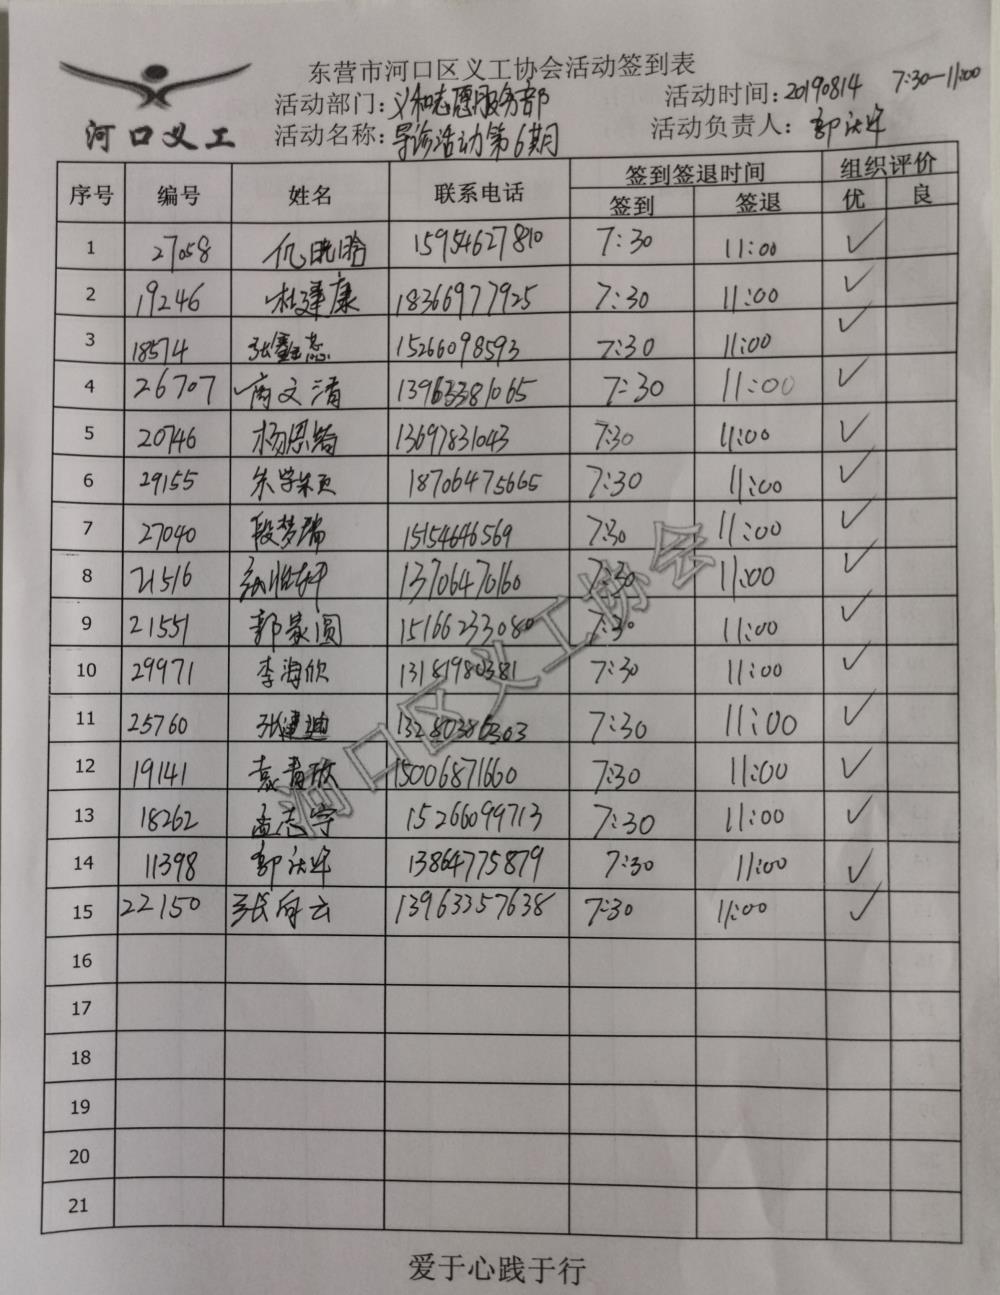 东营市河口区义工协会活动签到表
河口义工
活动部门：义和志愿服务部 活动时间：20190814 7:30—11:00
活动名称：导诊活动第6期 活动负责人：郭
序号 编号 姓名 联系电话 签到签退时间 组织评价
签到 签退 优 良
1 27058 15954627810 7:30 11:00 ✓
2 19246 杜建康 18366977925 7:30 11:00 ✓
3 18574 张鑫蕊 15266098593 7:30 11:00 ✓
4 26707 文清 13963381065 7:30 11:00 ✓
5 20746 杨思 13697831043 7:30 11:00 ✓
6 29155 朱学 18706475665 7:30 11:00 ✓
7 27040 段梦瑞 15154646569 7:30 11:00 ✓
8 21516 13706470160 7:30 11:00 ✓
9 21551 郭家圆 15166233080 7:30 11:00 ✓
10 29971 李海欣 13181980381 7:30 11:00 ✓
11 25760 张建迪 13280386303 7:30 11:00 ✓
12 19141 袁青 15006871660 7:30 11:00 ✓
13 18262 孟志宇 15266099713 7:30 11:00 ✓
14 11398 郭 13864775879 7:30 11:00 ✓
15 22150 张云 13963357638 7:30 11:00 ✓
16
17
18
19
20
21
河口区义工协会
爱于心践于行